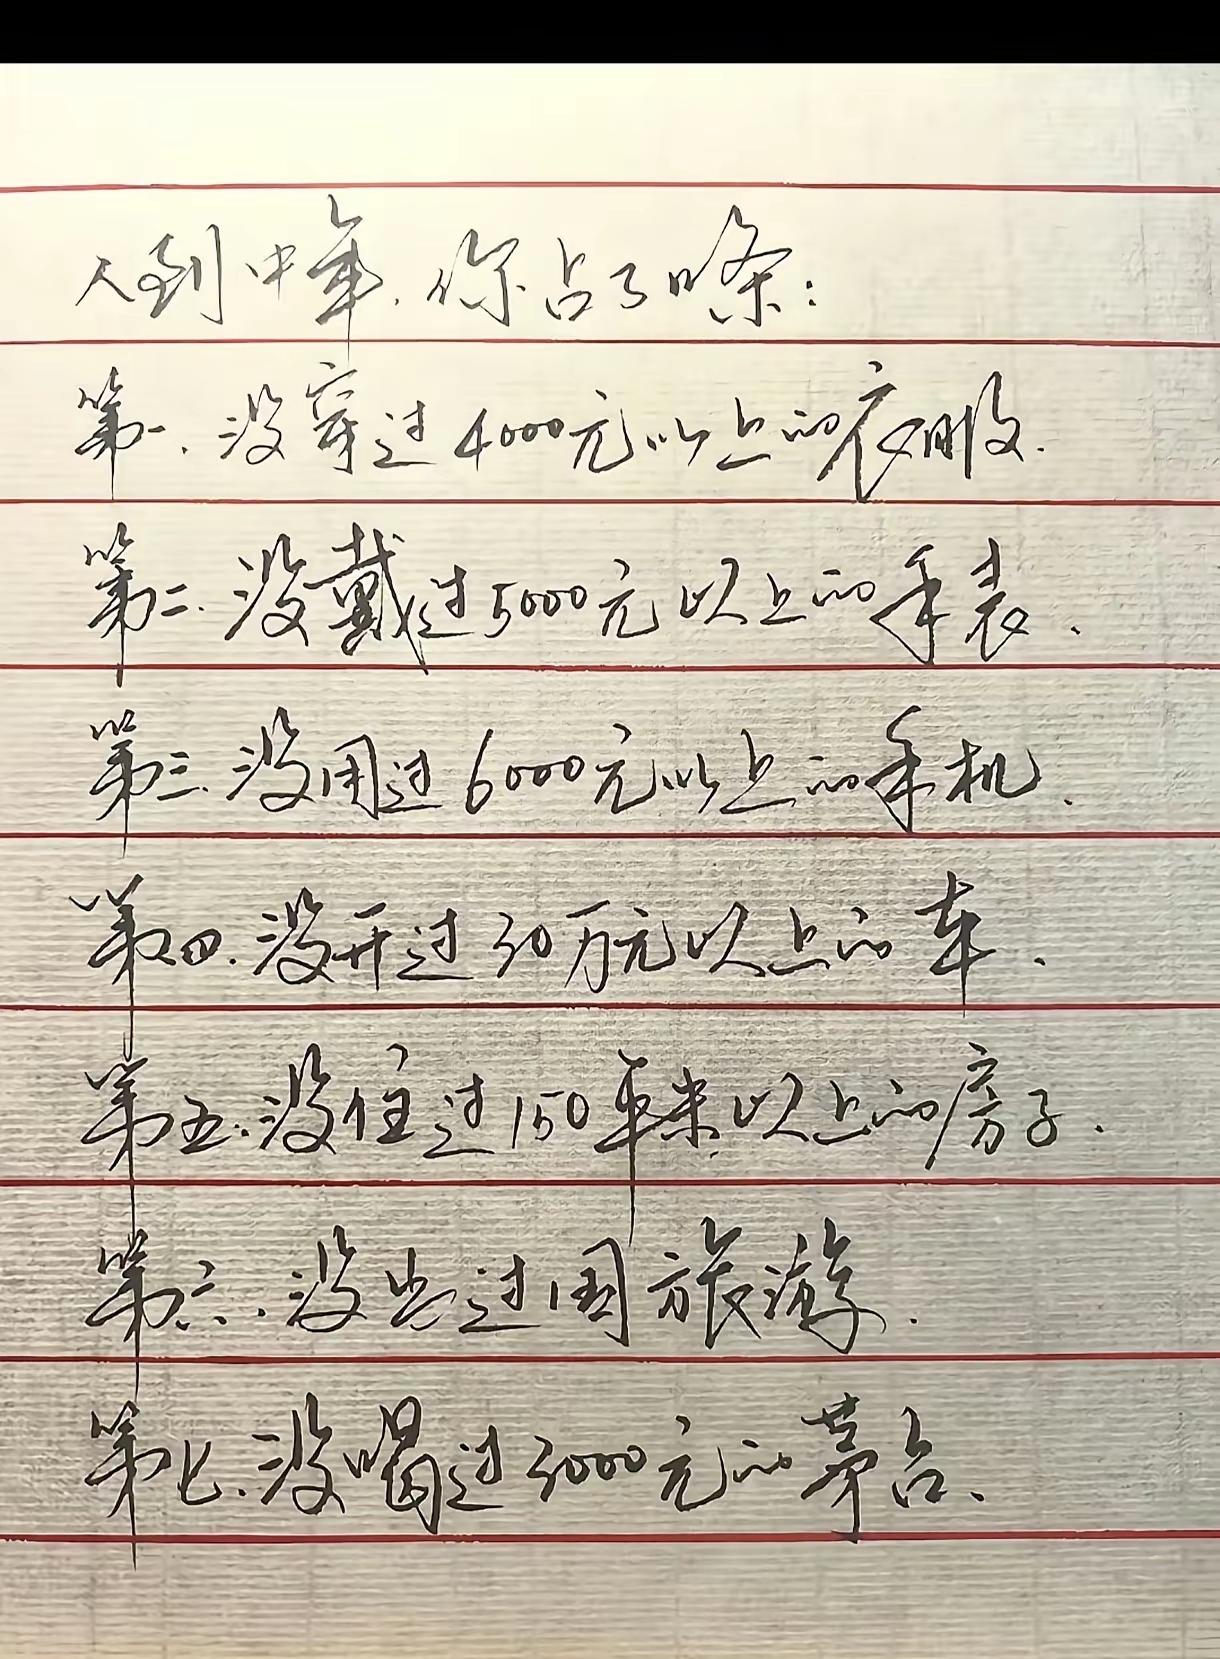 人到中年，你占了几条：
第一、没穿过4000元以上的衣服.
第二、没戴过5000元以上的手表.
第三、没用过6000元以上的手机.
第四、没开过30万元以上的车.
第五、没住过150平米以上的房子.
第六、没出过国旅游.
第七、没喝过3000元的茅台、